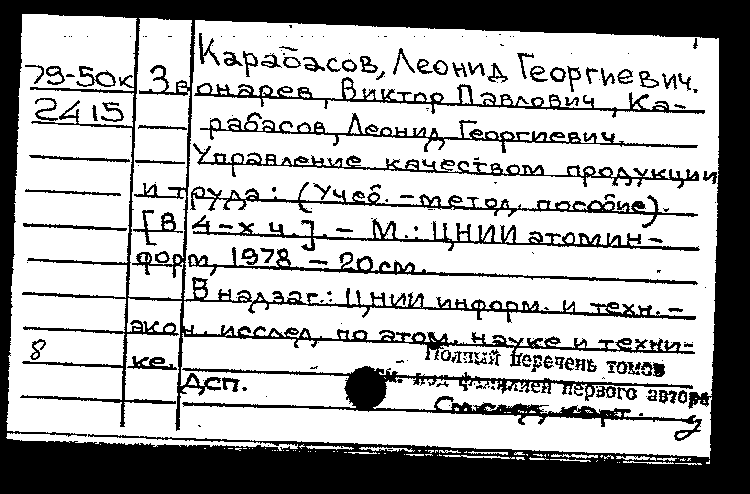 Карабасов, Леонид Георгиевич.
79-50к Звонарев, Виктор Павлович, Ка-
2415
рабасов, Леонид Георгиевич.
Управление качеством продукции
и труда: (Учеб. – метод. пособие).
[В 4-х ч.]. – М.: ЦНИИ атомин-
форм, 1978 – 20 см.
В надзаг.: ЦНИИ информ. и техн.-
экон. исслед. по атом. науке и техни-
8 ке.
Полный перечень томов
ДСП.
см. под фамилией первого автора
См. след. карт.
у